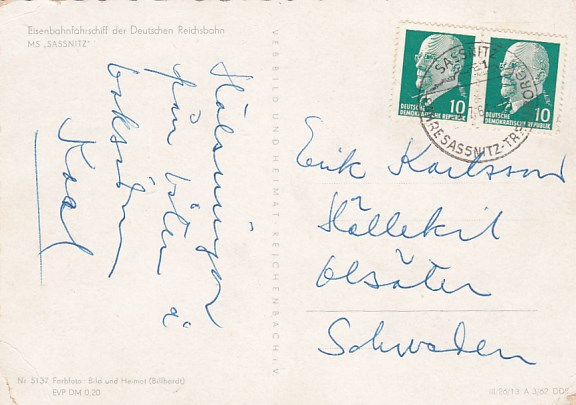 Eisenbahnfährschiff der Deutschen Reichsbahn
MS „SASSNITZ"
Hälsningar
från östen å
baksidan
Karl
VERBILD UND HEIMAT REICHENBACH I.V.
10 10
DEUTSCHE DEUTSCHE
DEMOKRATISCHE REPUBLIK DEMOKRATISCHE REPUBLIK
SASSNITZ
Erik Karlsson
Hällekil
Ölsäter
Schweden
Nr. 5137 Farbfoto: Bild und Heimat (Billhardt)
EVP DM 0,20
A 3/62 DDR